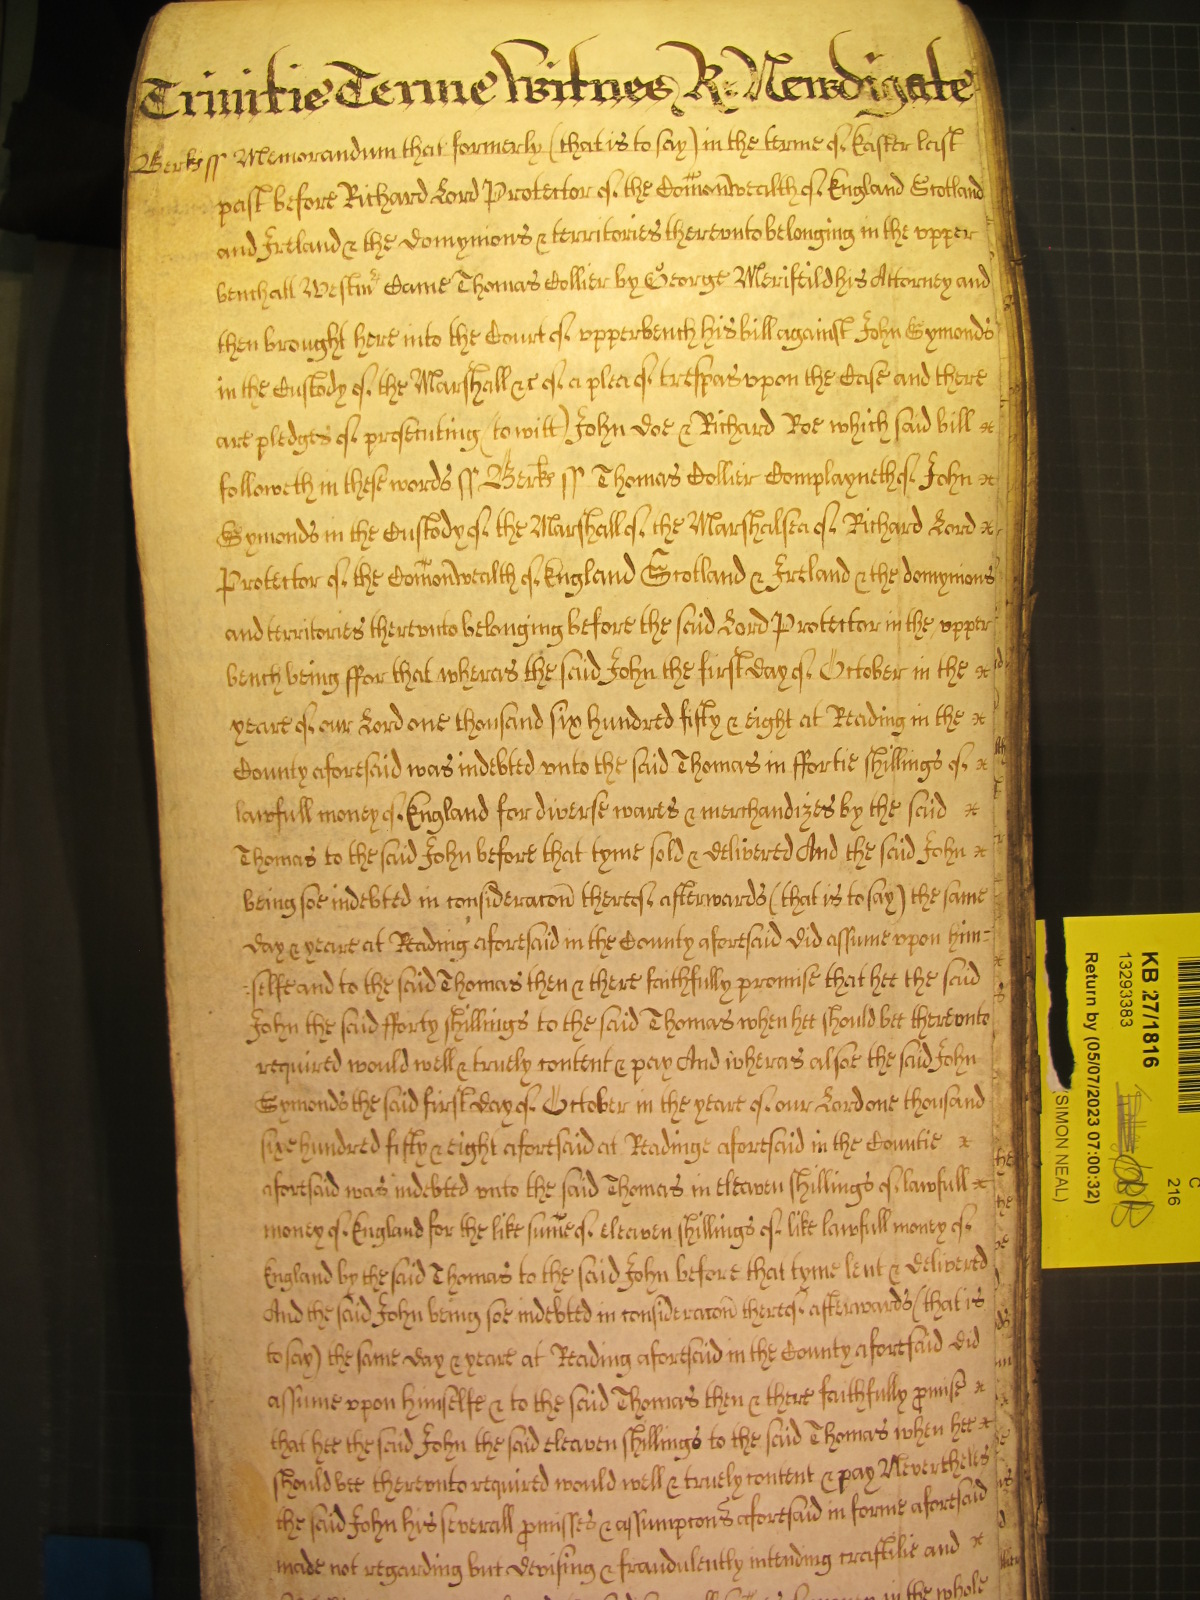 Trinitie Terme Witnes R: Newdigate
Berks ss Memorandum that formerly (that is to say) in the terme of Easter last
past before Richard Lord Protector of the Comonwealth of England Scotland
and Ireland & the domynions & territories therevnto belonging in the vpper
bench att Westmr Came Thomas Collier by George Merifeild his Attorney and
then brought here into the Court of vpperbench his bill against John Symonds
in the Custody of the Marshall &c of a plea of trespas vpon the Case and there
are pledges of prosecuting (to witt) John Doe & Richard Roe which said bill
followeth in these words ss Berks ss Thomas Collier Complayneth of John
Symonds in the Custody of the Marshall of the Marshalsea of Richard Lord
Protector of the Comonwealth of England Scotland & Ireland & the domynions
and territories therevnto belonging before the said Lord Protector in the vpper
bench being ffor that wheras the said John the first day of October in the
yeare of our Lord one thousand six hundred fifty & eight at Reading in the
County aforesaid was indebted vnto the said Thomas in ffortie shillings of
lawfull money of England for diverse wares & merchandizes by the said
Thomas to the said John before that tyme sold & delivered And the said John
being soe indebted in consideracon thereof afterwards (that is to say) the same
day & yeare at Reading aforesaid in the County aforesaid did assume vpon him=
=selfe and to the said Thomas then & there faithfully promise that hee the said
John the said fforty shillings to the said Thomas when hee should bee therevnto
required would well & truely content & pay And wheras alsoe the said John
Symonds the said first day of October in the yeare of our Lord one thousand
sixe hundred fifty & eight aforesaid at Readinge aforesaid in the Countie
aforesaid was indebted vnto the said Thomas in eleaven shillings of lawfull
money of England for the like sume of eleaven shillings of like lawfull money of
England by the said Thomas to the said John before that tyme lent & delivered
And the said John being soe indebted in consideracon thereof afterwards (that is
to say) the same day & yeare at Reading aforesaid in the County aforesaid did
assume vpon himselfe & to the said Thomas then & there faithfully pmise
that hee the said John the said eleaven shillings to the said Thomas when hee
should bee therevnto required would well & truely content & pay Neverthelés
the said John his severall pmisses & assumpcons aforesaid in forme aforesaid
made not regarding but devising & fraudulently intending craftilie and
in the whole
KB 27/1816
13293383
Return by (05/07/2023 07:00:32)
(SIMON NEAL)
C
216